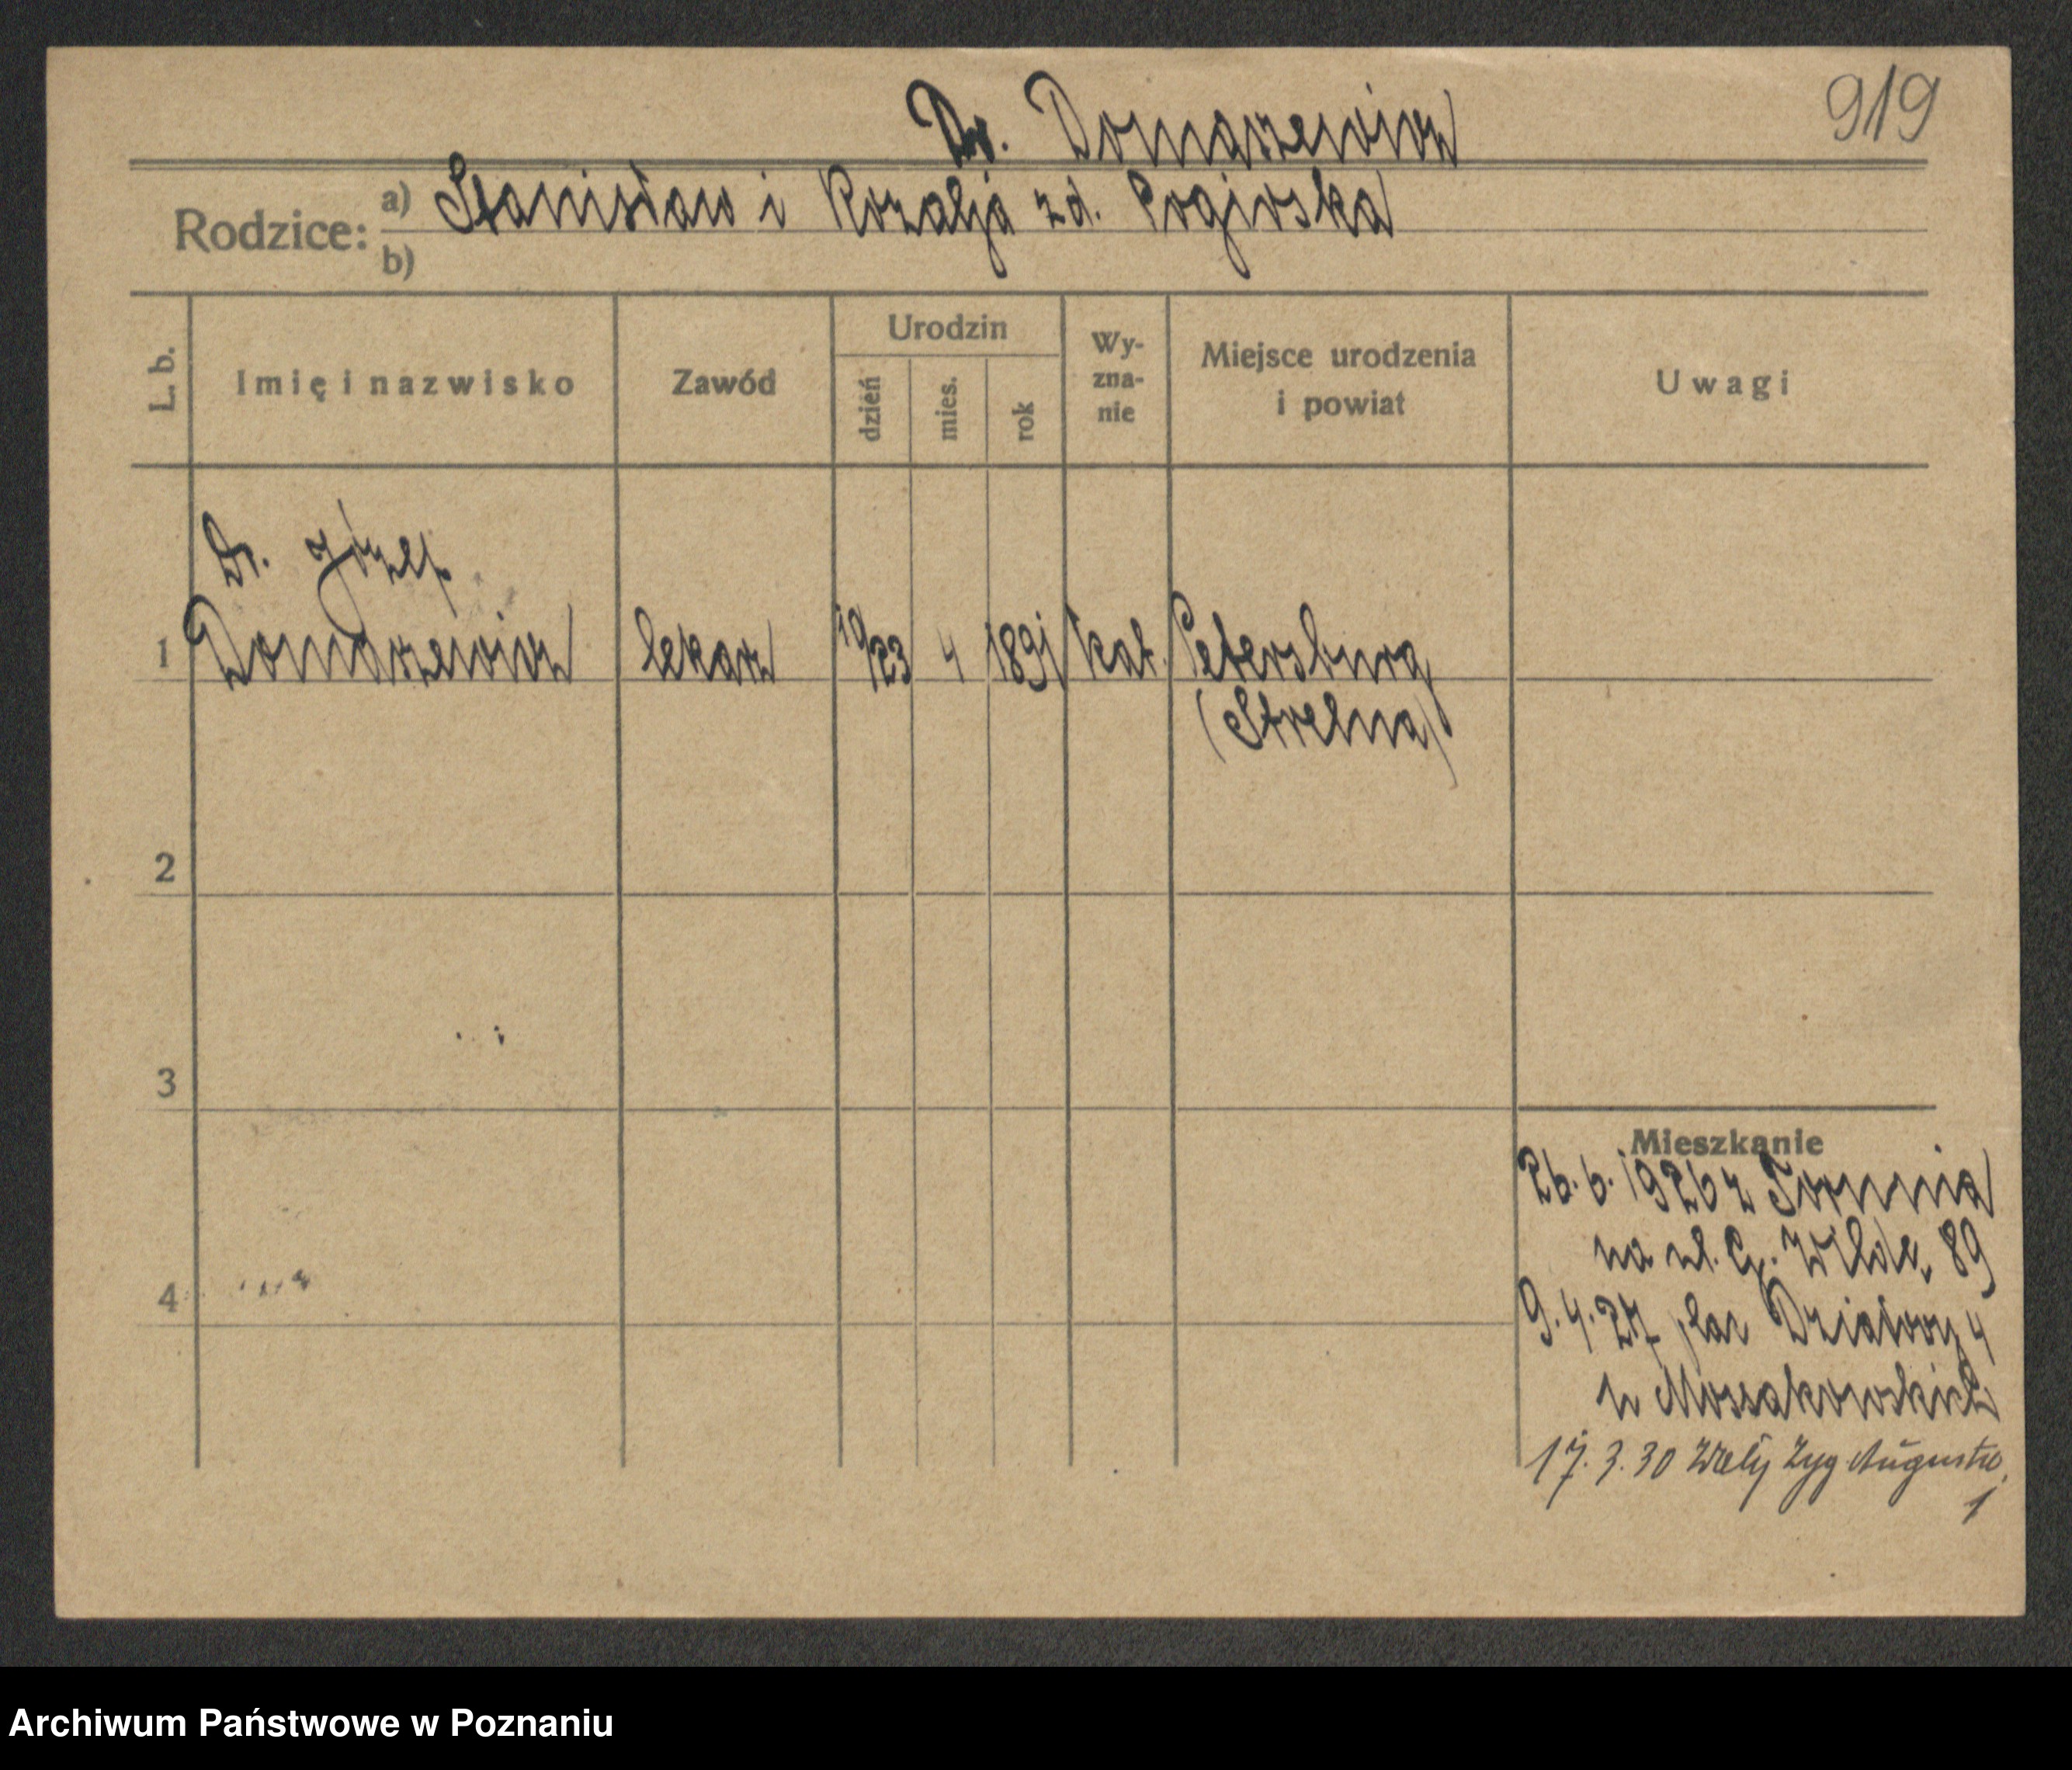 919
Dr. Domaszewicz
Rodzice: a) Stanisław i Rozalja zd. Pogirska
b)
L. b. Imię i nazwisko Zawód Urodzin dzień mies. rok Wy-zna-nie Miejsce urodzenia i powiat Uwagi
Dr. Józef
1 Domaszewicz lekarz 10/23 4 1891 kat. Petersburg
(Strelna)
2
3
4
Mieszkanie
26. 6. 1926 z Torunia
na ul. G. Wilda 89
9. 4. 27 plac Działowy 4
u Mossakowskich
17. 3. 30 Wały Zyg Augusta
1
Archiwum Państwowe w Poznaniu